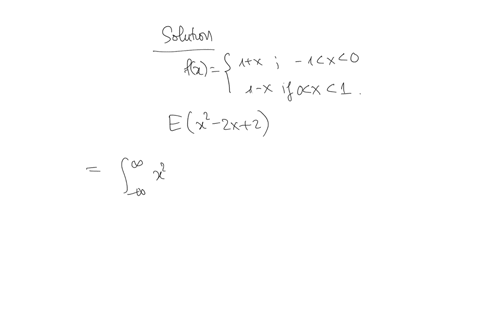 Solution
f(x) = { 1+x ; -1<x<0
1-x if 0<x<1.
E(x²-2x+2)
= ∫_{-∞}^{∞} x²